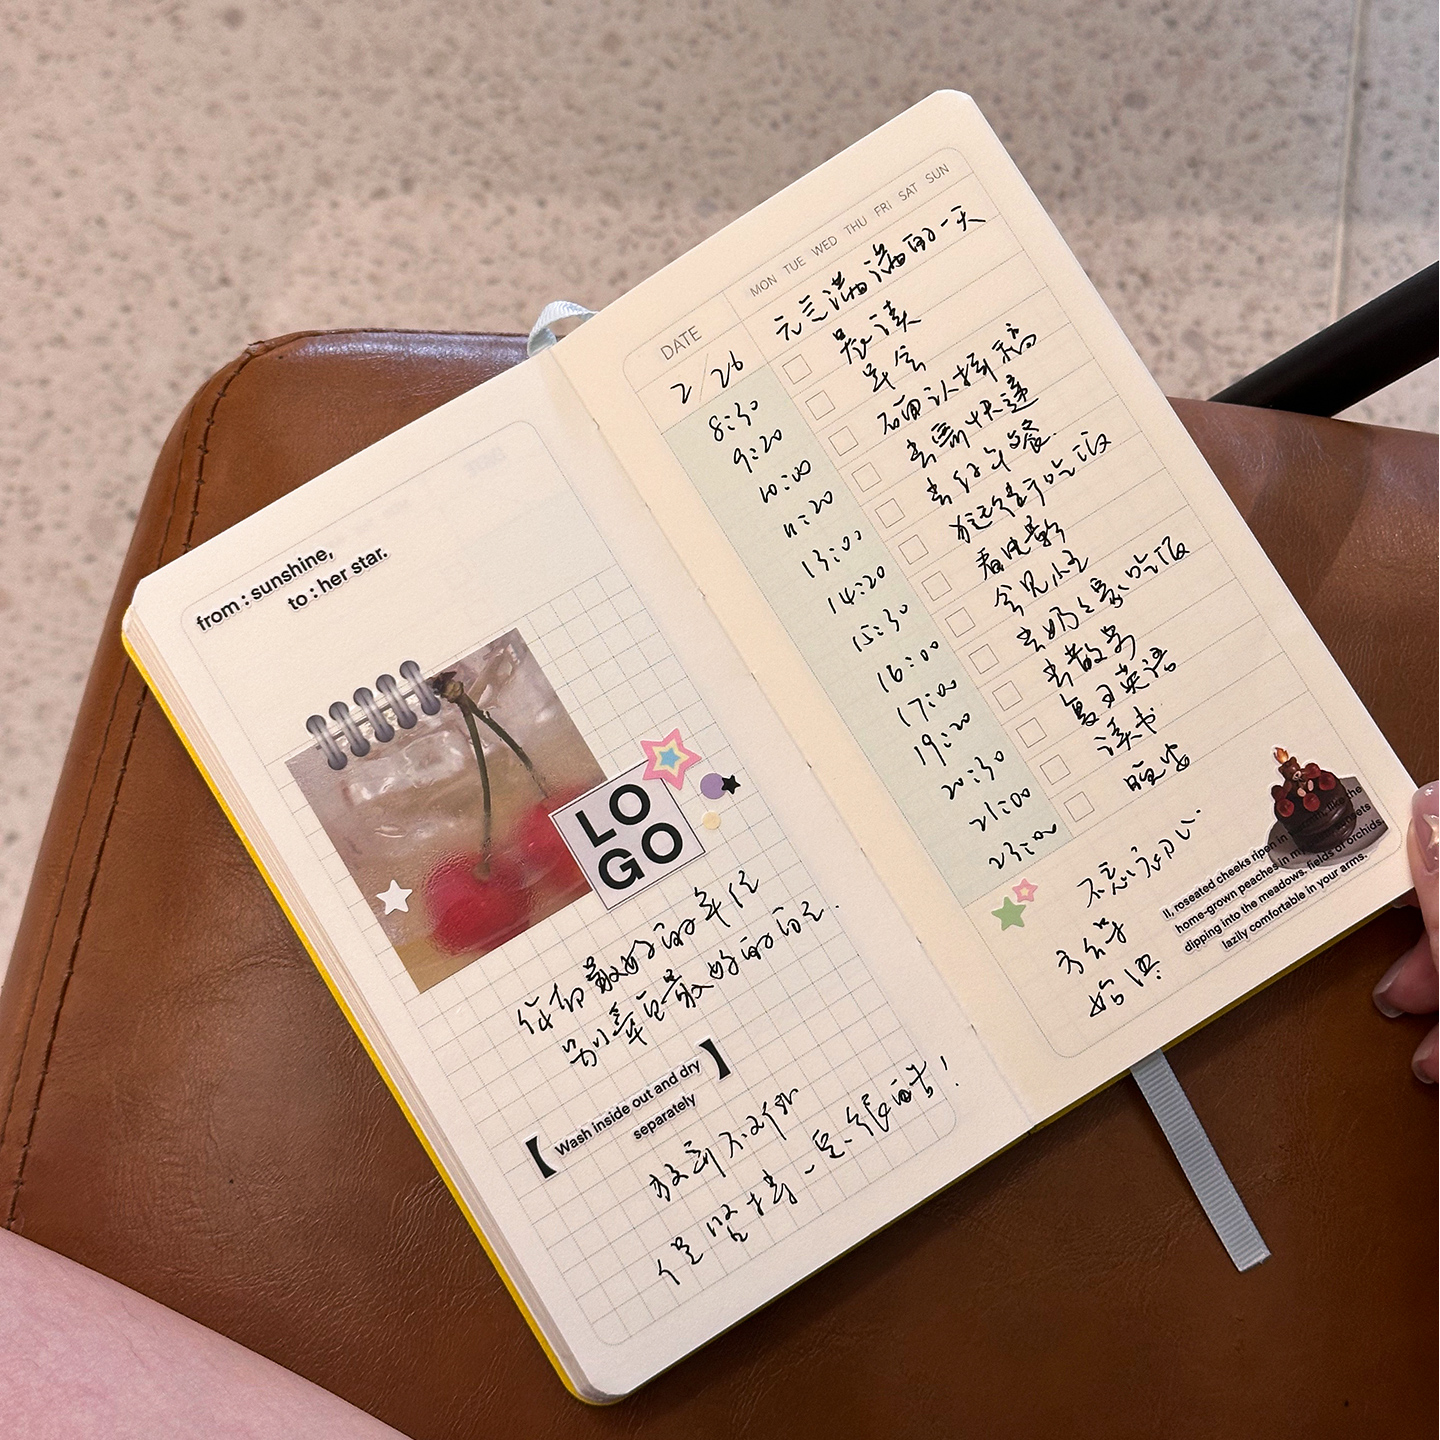 from : sunshine,
to : her star.
LO
GO
你有最好的年纪
别辜负最好的自己.
【 Wash inside out and dry
separately 】
放弃不难
但坚持一定很酷！
DATE
MON TUE WED THU FRI SAT SUN
2/26
元气满满的一天
8:30 晨读
9:20 早会
10:00 确认摘稿
11:20 去寄快递
13:00 去吃午餐
14:20 逛街吃饭
15:30 看电影
16:00 会见小王
17:00 去奶奶家吃饭
19:20 去散步
20:30 复习英语
21:00 读书
23:00 晚安
不忘初心
方得
始终
ll, roseated cheeks ripen in
home-grown peaches in
dipping into the meadows. fields of orchids.
lazily comfortable in your arms.